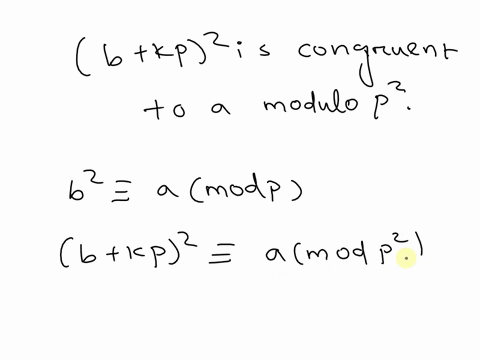 (b+kp)² is congruent
to a modulo p².
b² ≡ a (mod p)
(b+kp)² ≡ a (mod p²)